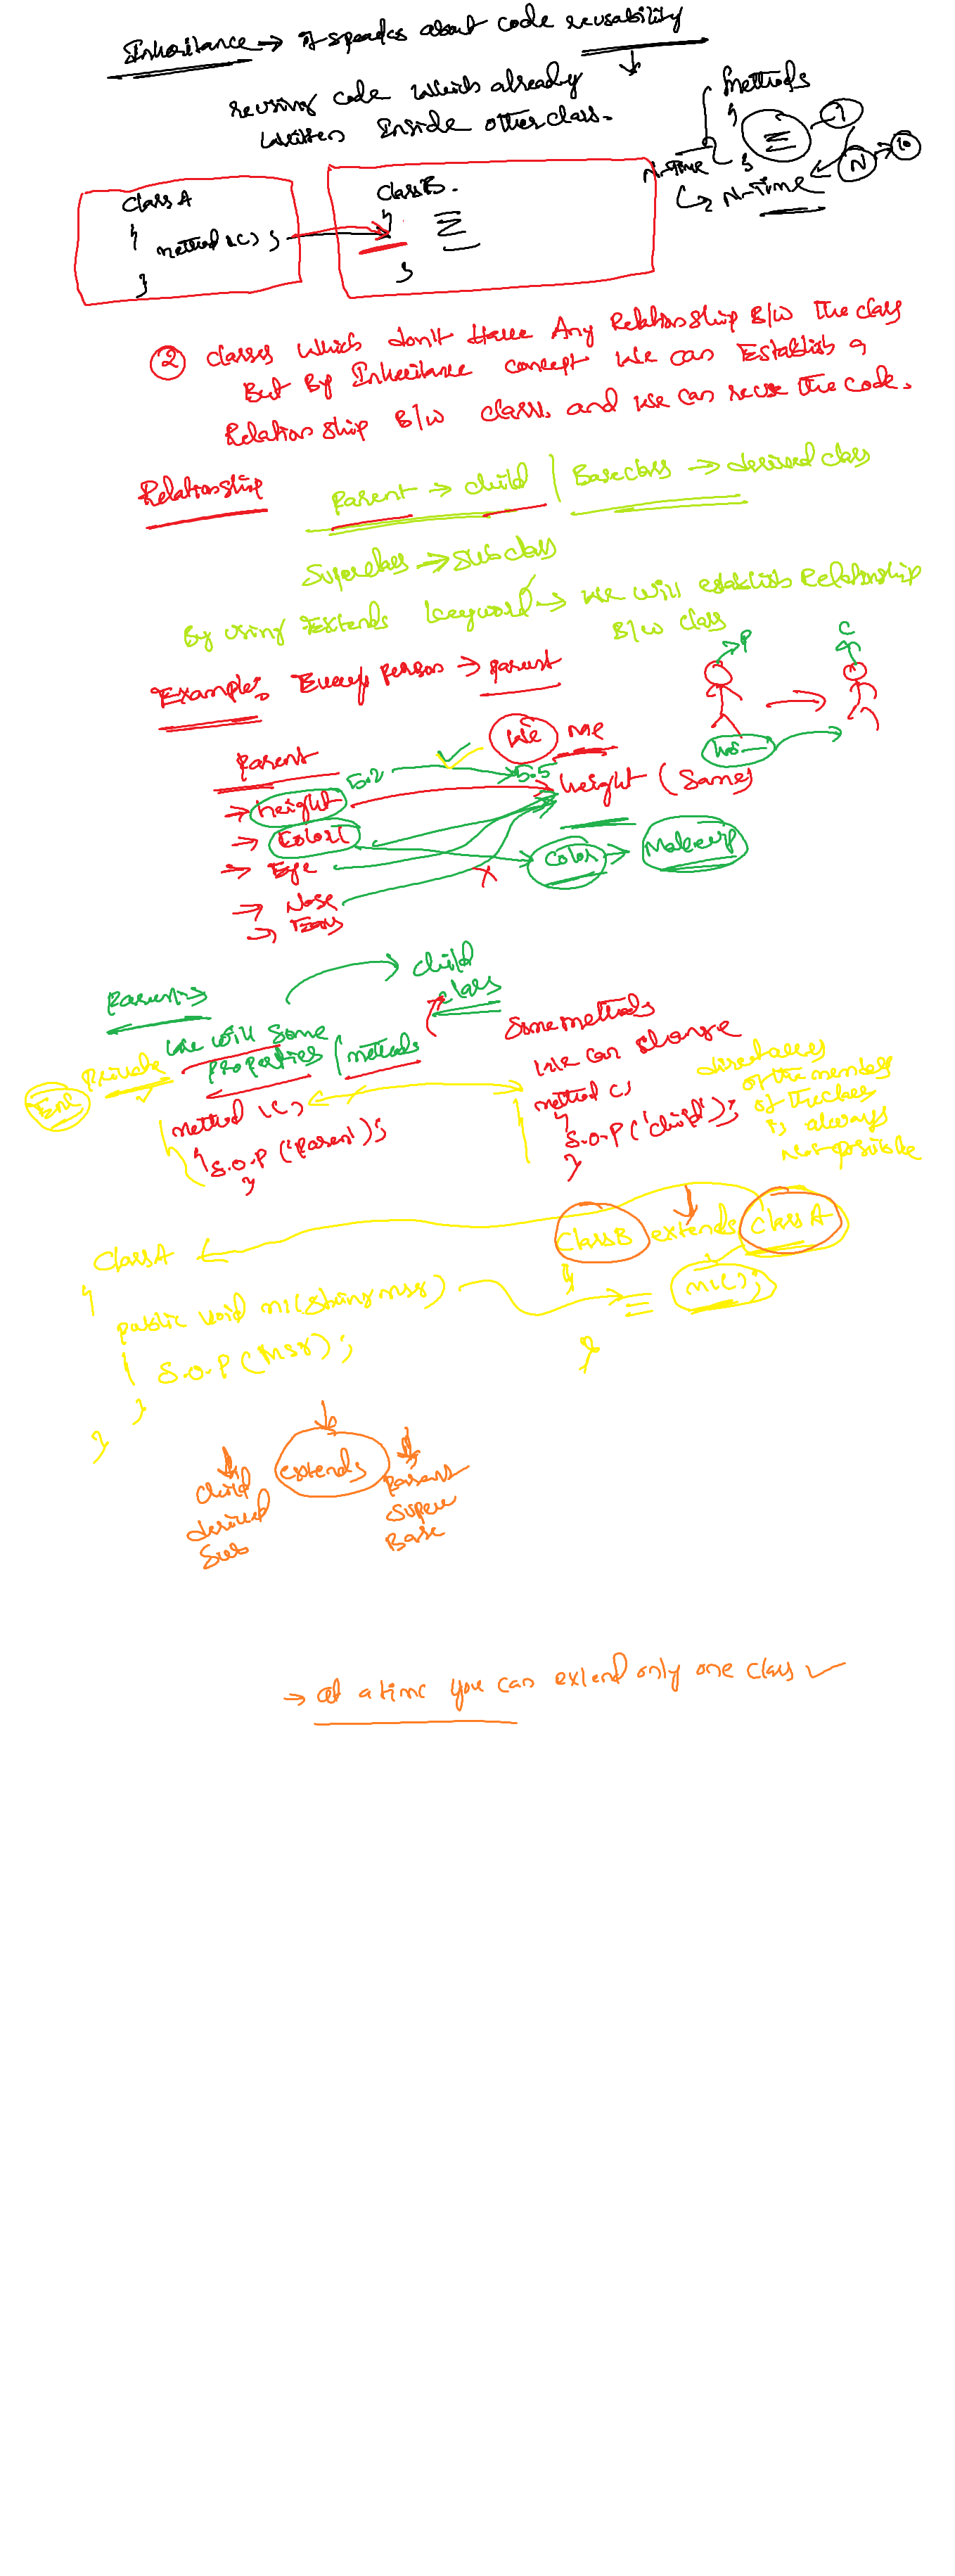 Inheritance → it speaks about code reusability
reusing code which already
written Inside other class.
methods
{
1
}
N-Time
N
10
N-Time
class A
{
method1();
}
class B.
{
}
② classes which don't Have Any Relationship B/w The class
But By Inheritance concept we can Establish a
Relationship B/w class, and we can reuse the code.
Relationship
Parent → child | Base class → derived class
Super class → sub class
By using Extends keyword → we will establish Relationship
B/w class
P
C
Examples, Every person → parent
We
me
Parent
5.2
5.5
→ height
height (same)
→ Color
→ Eye
color → Makeup
→ Nose
→ Ears
child
class
Parent →
We will some
properties / methods
Private
Enc
method1()
{
S.O.P('Parent');
}
Some methods
we can change
method()
{
S.O.P('child');
}
direct access
of the members
of the class
is always
not possible
Class A
{
public void m1(String msg)
{
S.O.P(msg);
}
}
Class B extends class A
{
m1();
}
extends
child
derived
Sub
Parent
Super
Base
→ at a time you can extend only one class ✓